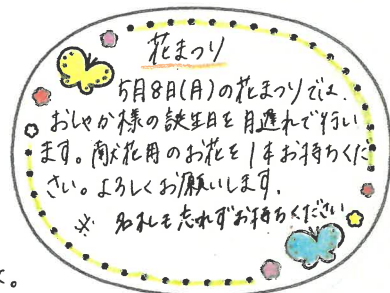 花まつり
5月8日(月)の花まつりでは、
おしゃか様の誕生日を月遅れで行い
ます。献花用のお花を1本お持ちくだ
さい。よろしくお願いします。
※ 名札も忘れずお持ちください
く。